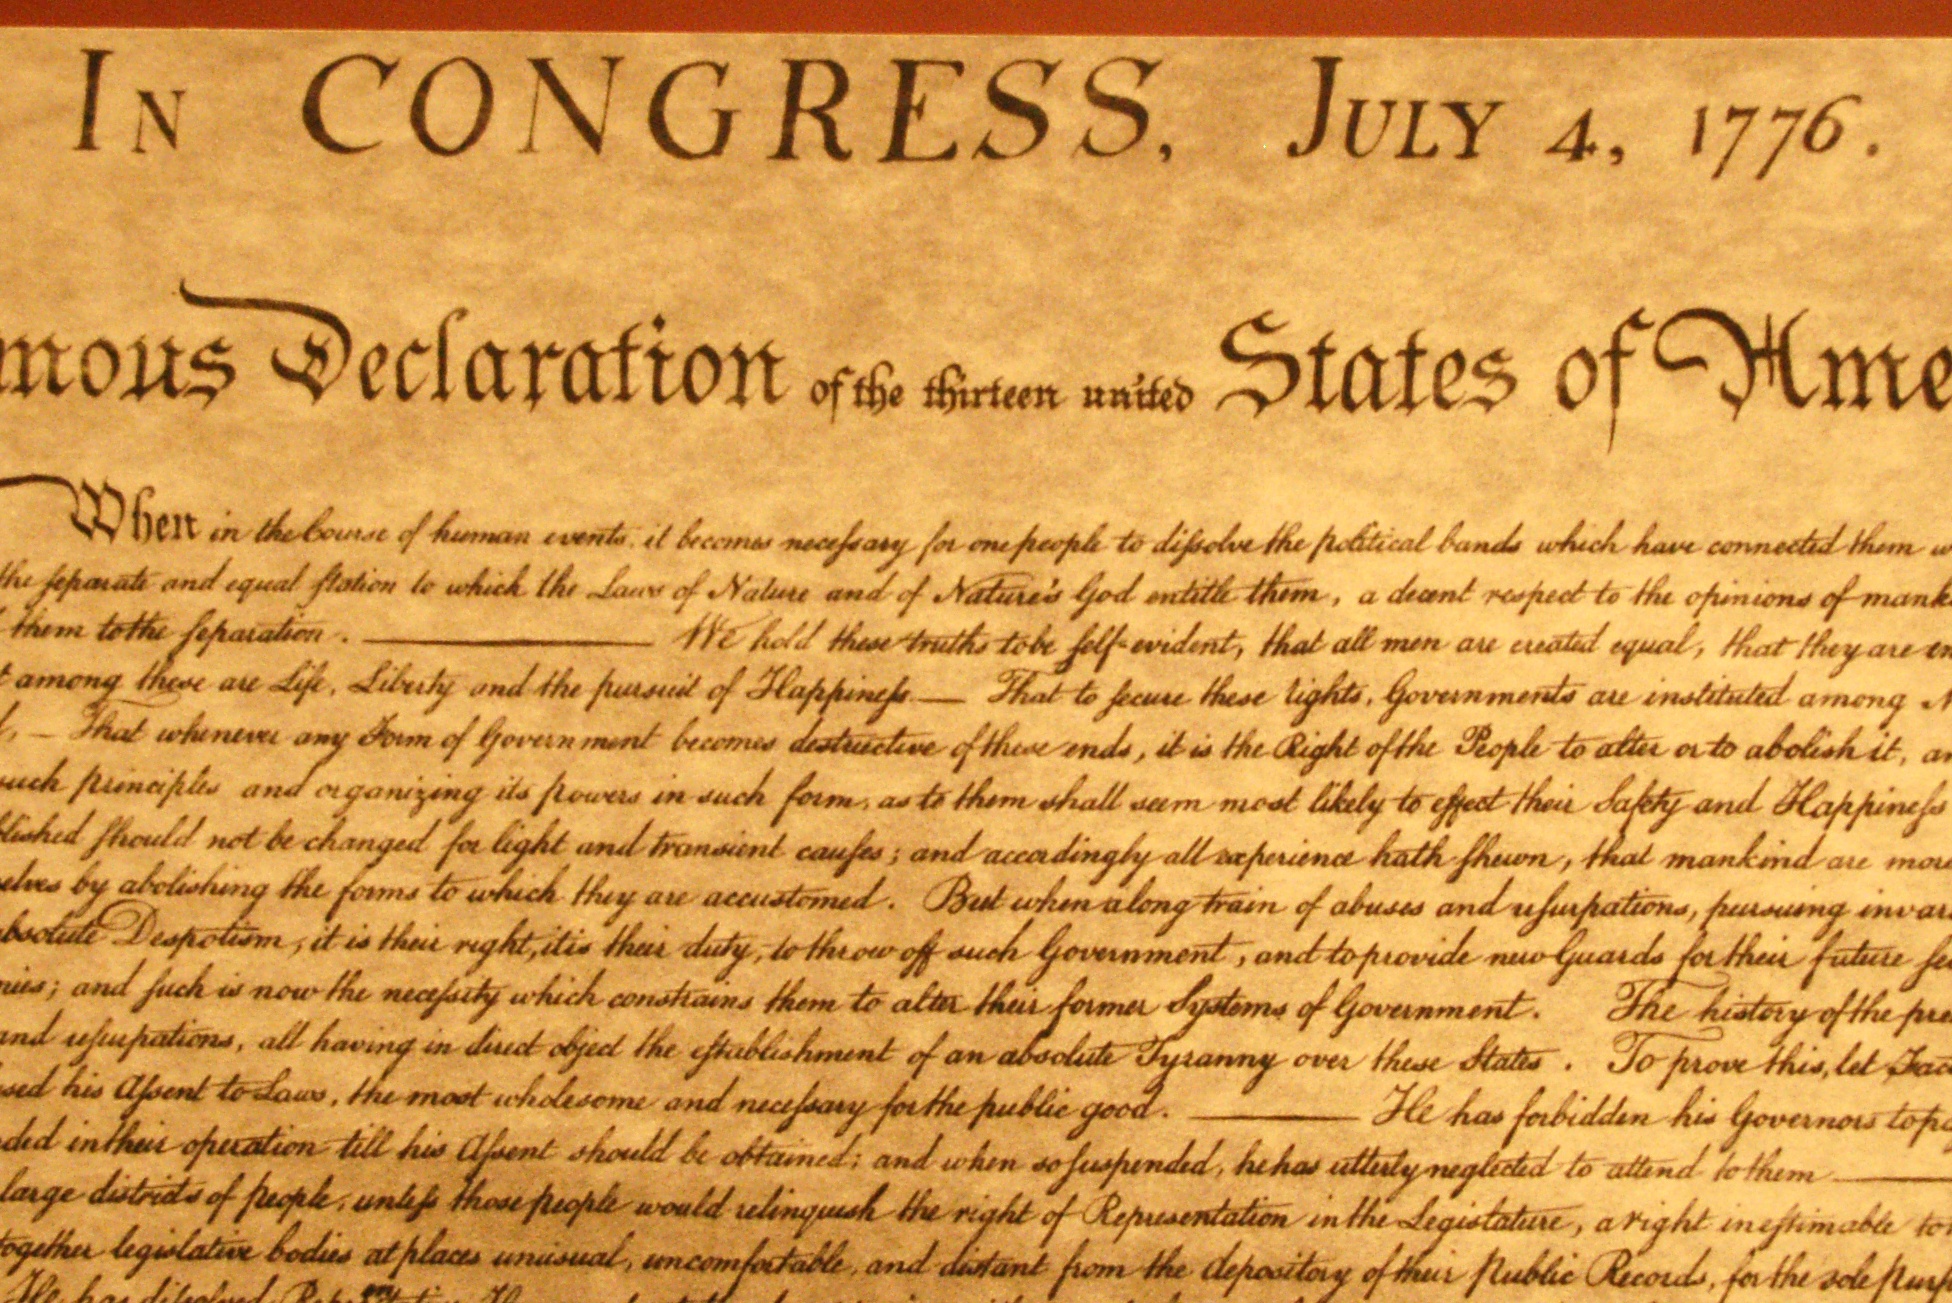 In CONGRESS, July 4, 1776.
mous Declaration of the thirteen united States of Ame
When in the Course of human events, it becomes necessary for one people to dissolve the political bands which have connected them w
the separate and equal station to which the Laws of Nature and of Nature's God entitle them, a decent respect to the opinions of mank
them to the separation. ——— We hold these truths to be self-evident, that all men are created equal, that they are en
t among these are Life, Liberty and the pursuit of Happiness.— That to secure these rights, Governments are instituted among M
d, — That whenever any Form of Government becomes destructive of these ends, it is the Right of the People to alter or to abolish it, an
such principles and organizing its powers in such form, as to them shall seem most likely to effect their Safety and Happiness
blished should not be changed for light and transient causes; and accordingly all experience hath shewn, that mankind are more
selves by abolishing the forms to which they are accustomed. But when a long train of abuses and usurpations, pursuing invar
absolute Despotism, it is their right, it is their duty, to throw off such Government, and to provide new Guards for their future se
nies; and such is now the necessity which constrains them to alter their former Systems of Government. The history of the pre
and usurpations, all having in direct object the establishment of an absolute Tyranny over these States. To prove this, let Fac
used his Assent to Laws, the most wholesome and necessary for the public good. ——— He has forbidden his Governors to pa
nded in their operation till his Assent should be obtained; and when so suspended, he has utterly neglected to attend to them ———
large districts of people, unless those people would relinquish the right of Representation in the Legislature, a right inestimable to
together legislative bodies at places unusual, uncomfortable, and distant from the depository of their Public Records, for the sole purp
He has dissolved